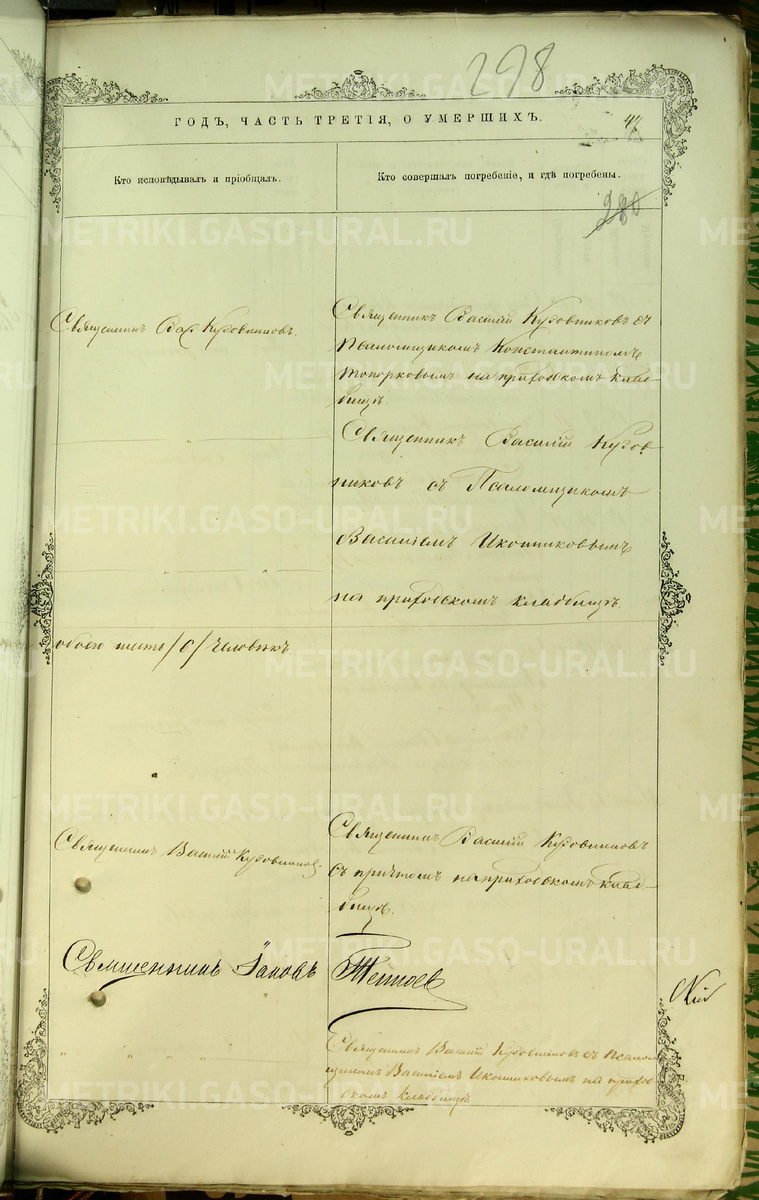 298
ГОДЪ, ЧАСТЬ ТРЕТІЯ, О УМЕРШИХЪ.
Кто исповѣдывалъ и пріобщалъ.
Кто совершалъ погребеніе, и гдѣ погребены.
280
Священникъ Вас. Кудовниковъ.
Священникъ Василій Кудовниковъ съ
Псаломщикомъ Константиномъ
Топорковымъ на приходскомъ клад-
бищѣ.
Священникъ Василій Кудов-
никовъ съ Псаломщикомъ
Василіемъ Иконниковымъ
на приходскомъ кладбищѣ.
обоего шесть /6/ человѣкъ
Священникъ Василій Кудовниковъ.
Священникъ Василій Кудовниковъ
съ причтомъ на приходскомъ клад-
бищѣ.
Священникъ Іаковъ
Священникъ Василій Кудовниковъ съ Псалом-
щикомъ Василіемъ Иконниковымъ на приход-
скомъ кладбищѣ
METRIKI.GASO-URAL.RU